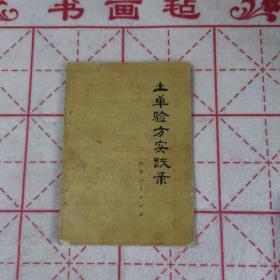 书画毡
土单验方实践录